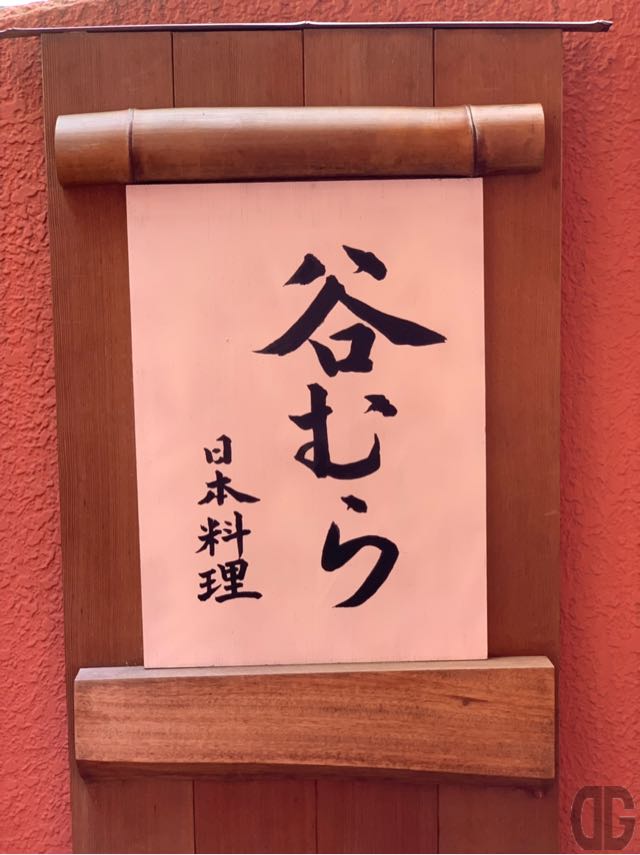 谷むら
日本料理
DG